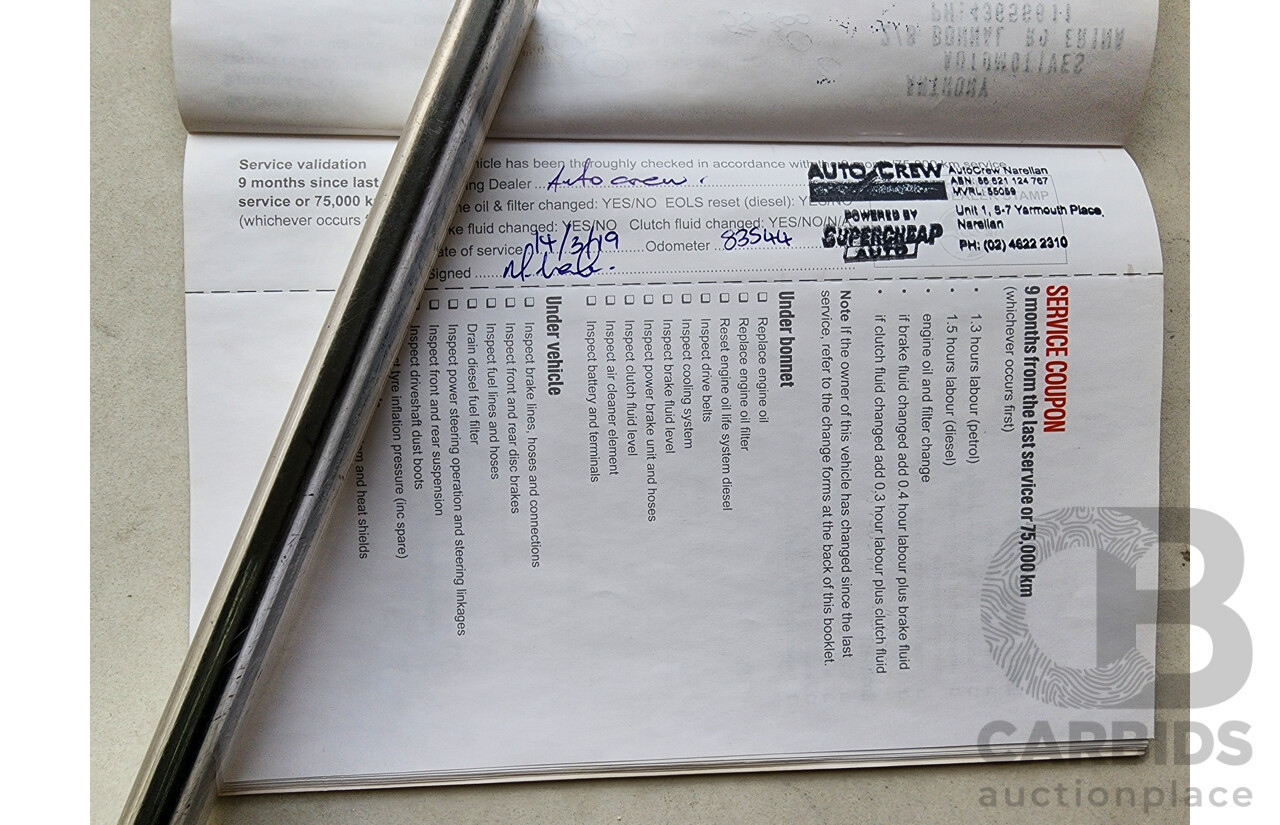 PH:43656011
2/8 BONNAL RD ERINA
AUTOMOTIVES
ANTHONY
Service validation
9 months since last
service or 75,000 k
(whichever occurs
icle has been thoroughly checked in accordance with 75,000 km service
ng Dealer ... Autocrew.
e oil & filter changed: YES/NO EOLS reset (diesel): YES/NO
ke fluid changed: YES/NO Clutch fluid changed: YES/NO/N/A
ate of service 14/3/19 ... Odometer ... 83544
Signed
AUTO CREW
POWERED BY
SUPERCHEAP
AUTO
STAMP
AutoCrew Narellan
ABN: 86 621 124 767
MVRL: 55059
Unit 1, 5-7 Yarmouth Place,
Narellan
PH: (02) 4622 2310
SERVICE COUPON
9 months from the last service or 75,000 km
(whichever occurs first)
• 1.3 hours labour (petrol)
• 1.5 hours labour (diesel)
• engine oil and filter change
• if brake fluid changed add 0.4 hour labour plus brake fluid
• if clutch fluid changed add 0.3 hour labour plus clutch fluid
Note If the owner of this vehicle has changed since the last
service, refer to the change forms at the back of this booklet.
Under bonnet
❑ Replace engine oil
❑ Replace engine oil filter
❑ Reset engine oil life system diesel
❑ Inspect drive belts
❑ Inspect cooling system
❑ Inspect brake fluid level
❑ Inspect power brake unit and hoses
❑ Inspect clutch fluid level
❑ Inspect air cleaner element
❑ Inspect battery and terminals
Under vehicle
❑ Inspect brake lines, hoses and connections
❑ Inspect front and rear disc brakes
❑ Inspect fuel lines and hoses
❑ Drain diesel fuel filter
❑ Inspect power steering operation and steering linkages
❑ Inspect front and rear suspension
❑ Inspect driveshaft dust boots
tyre inflation pressure (inc spare)
m and heat shields
CARBIDS
auctionplace